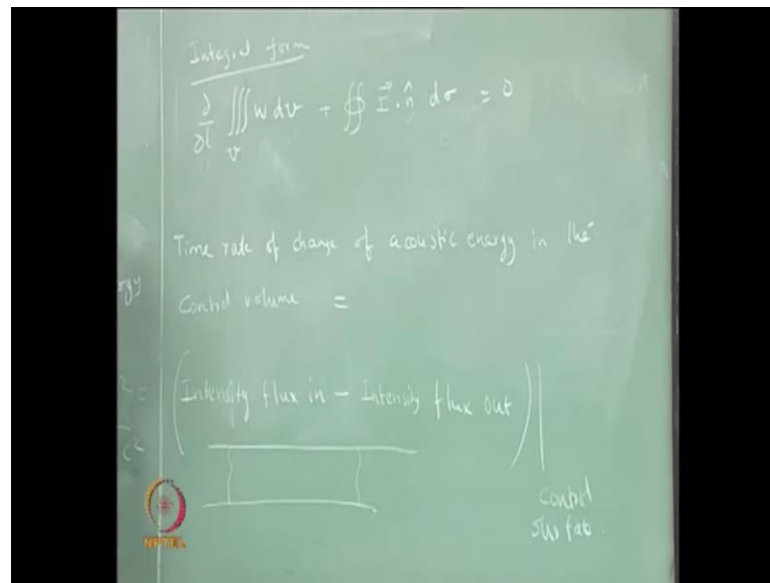 Integral form
∂/∂t ∭ W dv + ∯ I⃗ . n̂ dσ = 0
v
Time rate of change of acoustic energy in the
control volume =
(Intensity flux in – Intensity flux out)|
control
surface.
2 =
c²
NPTEL